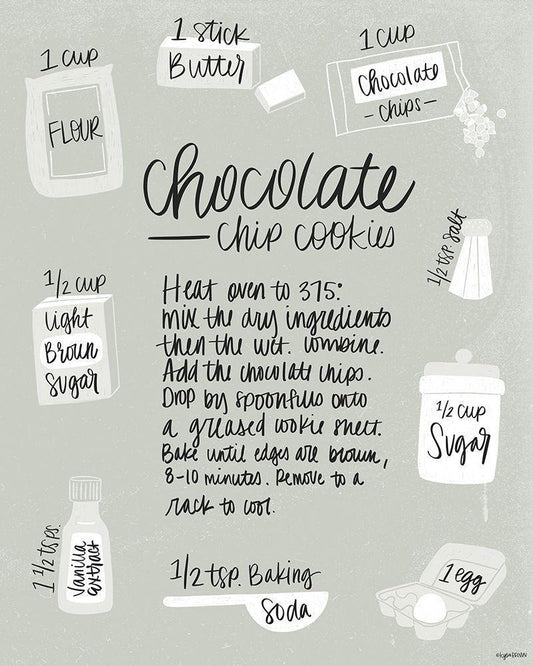 1 cup
FLOUR
1 stick
Butter
1 cup
Chocolate
- chips -
chocolate
— chip cookies
1/2 tsp. salt
1/2 cup
light
Brown
Sugar
Heat oven to 375°
mix the dry ingredients
then the wet. combine.
Add the chocolate chips.
Drop by spoonfuls onto
a greased cookie sheet.
Bake until edges are brown,
8-10 minutes. Remove to a
rack to cool.
1/2 cup
Sugar
1 1/2 tsps.
Vanilla
extract
1/2 tsp. Baking
Soda
1 egg